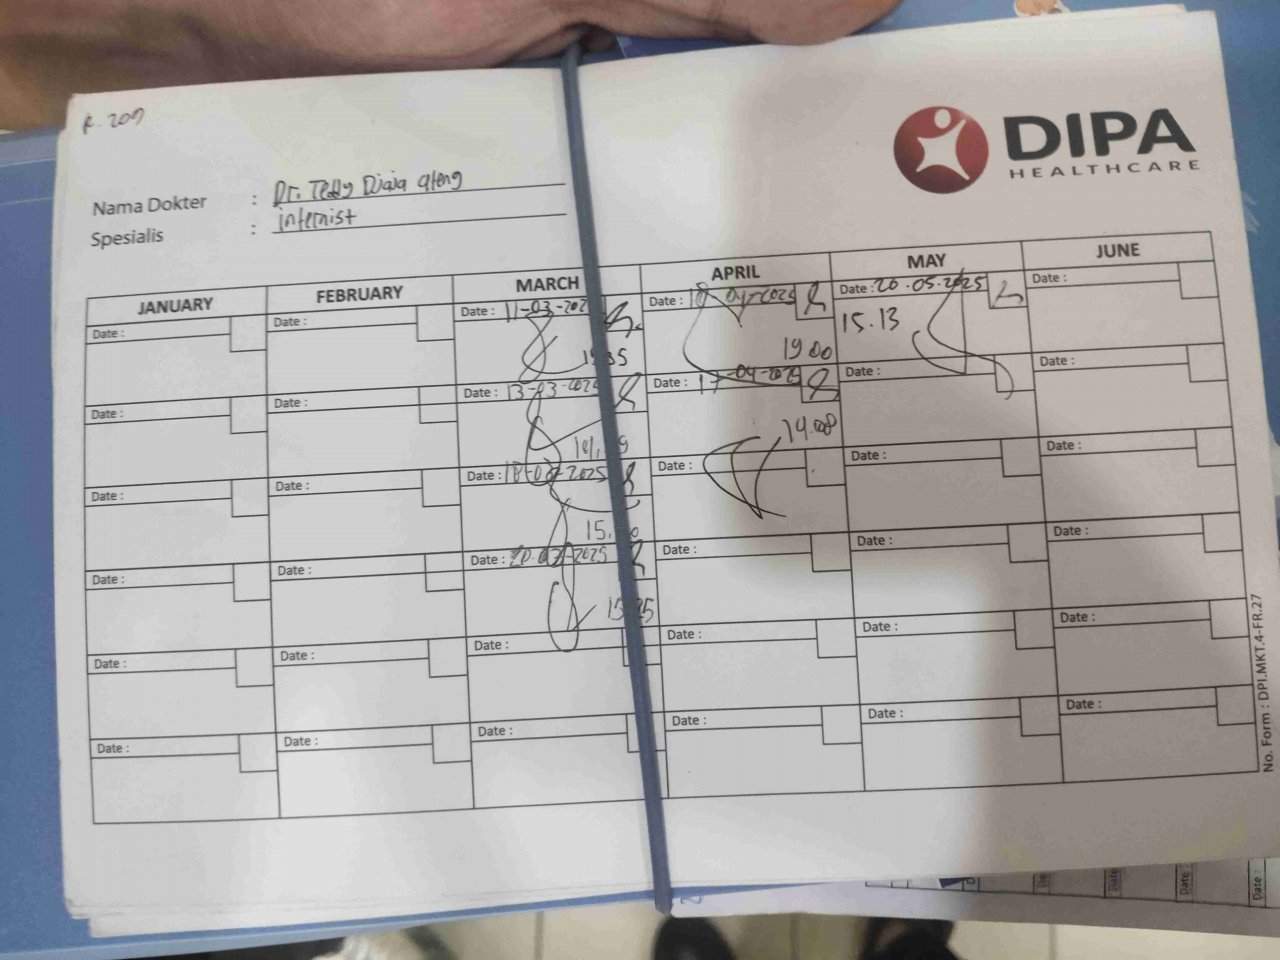 R. 209
DIPA
HEALTHCARE
Nama Dokter : Dr. Teddy
Spesialis : internist
JANUARY FEBRUARY MARCH APRIL MAY JUNE
Date : Date : Date : 11-03-202 Date : Date : 20.05.2025 Date :
19 00 15.13
Date : Date : Date : 13-03-2025 Date : 17-04-2025 Date : Date :
14.08
Date : Date : Date : 18-03-2025 Date : Date : Date :
15.
Date : Date : Date : 20-03-2025 Date : Date : Date :
Date : Date : Date : Date : Date : Date :
Date : Date : Date : Date : Date : Date :
No. Form : DPI.MKT.4-FR.27
Date : Date : Date :